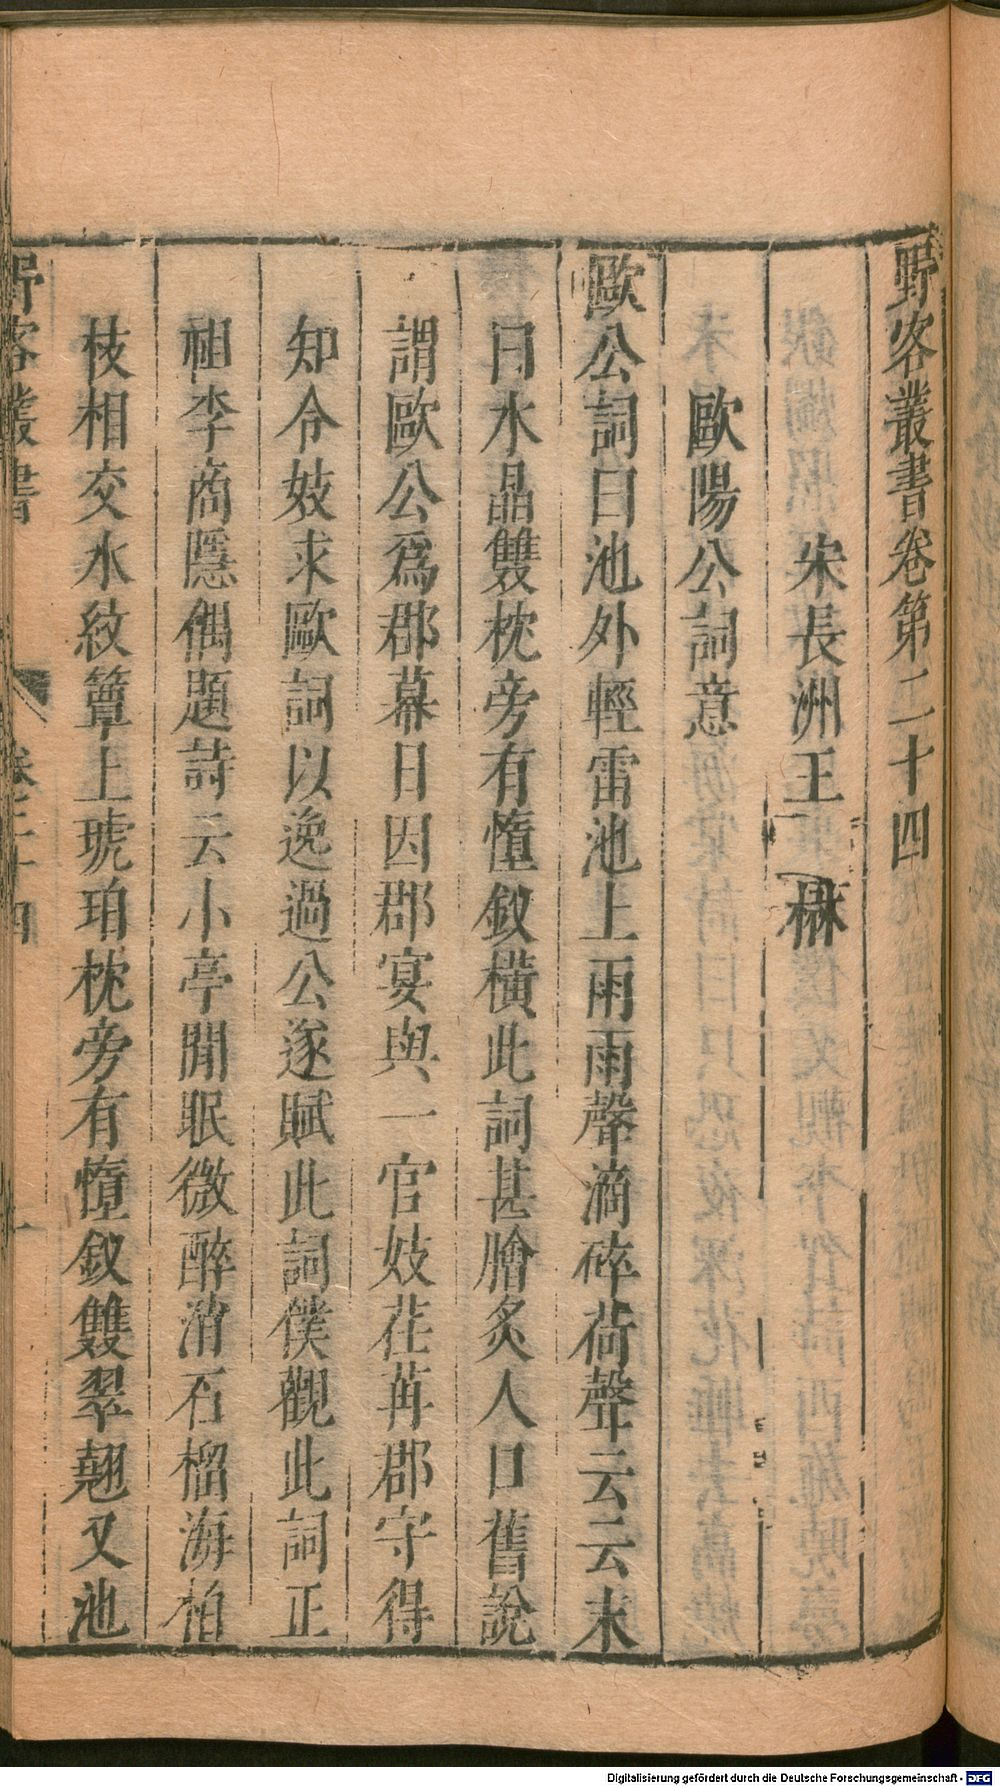 野客叢書卷第二十四
宋長洲王　楙
歐陽公詞意
歐公詞曰池外輕雷池上雨雨聲滴碎荷聲云云末
曰水晶雙枕旁有墮釵橫此詞甚膾炙人口舊說
謂歐公爲郡幕日因郡宴與一官妓荏苒郡守得
知令妓求歐詞以逸過公遂賦此詞僕觀此詞正
祖李商隱偶題詩云小亭閒眠微醉消石榴海柏
枝相交水紋簟上琥珀枕旁有墮釵雙翠翹又池
野客叢書
卷二十四
一
Digitalisierung gefördert durch die Deutsche Forschungsgemeinschaft - DFG